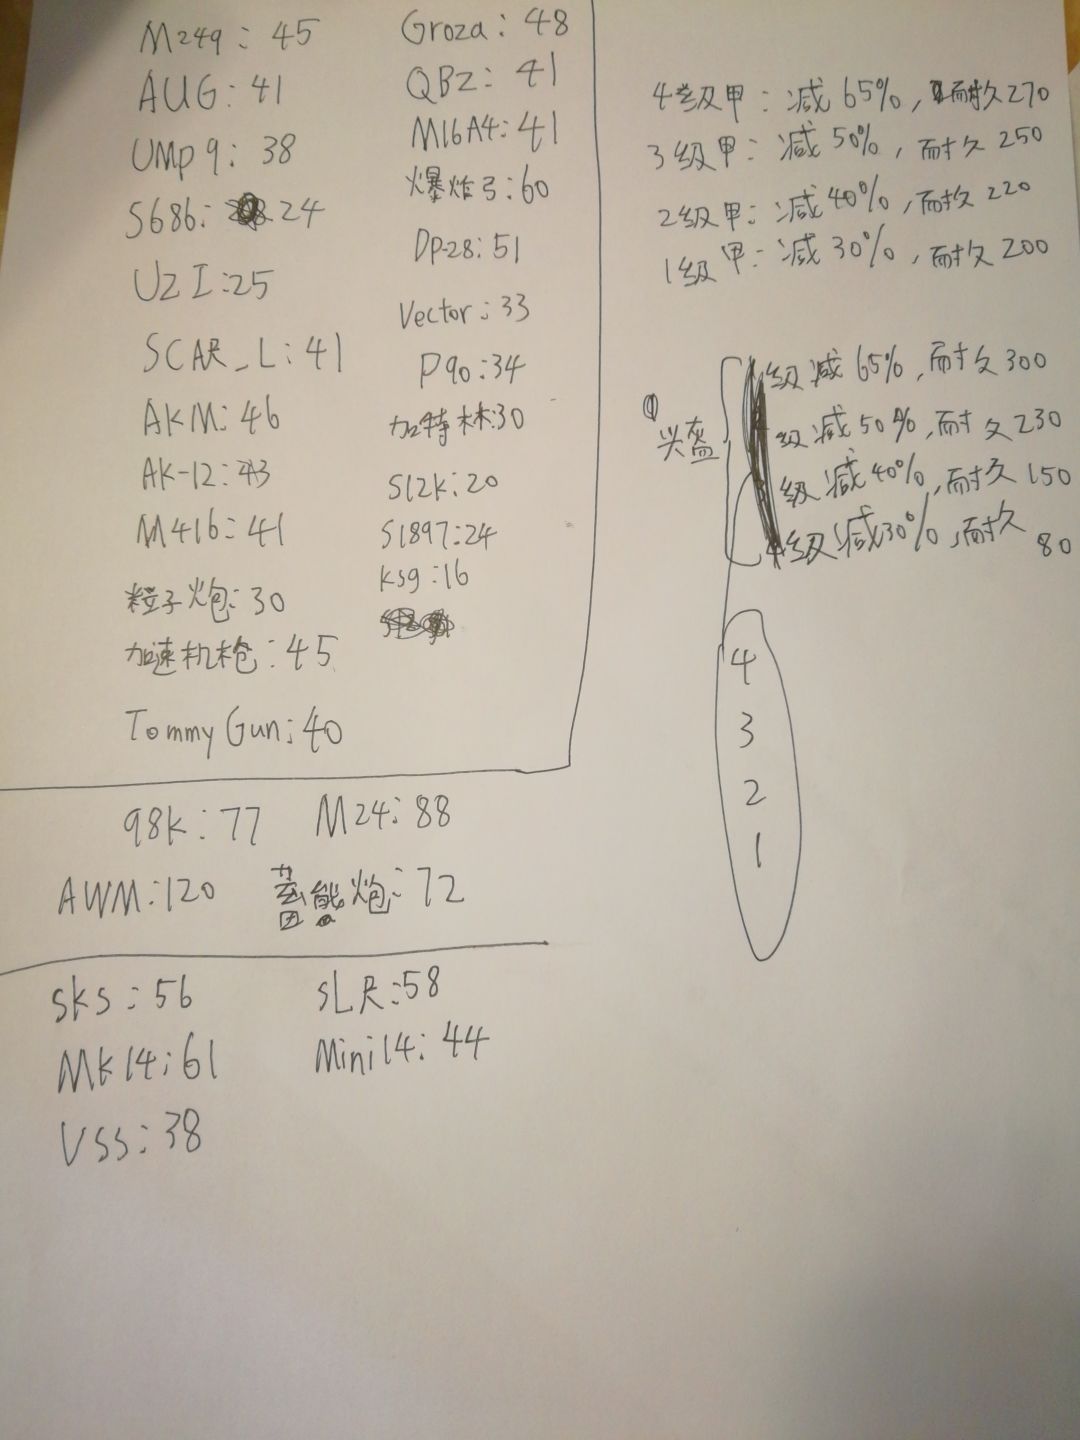 M249: 45
AUG: 41
UMP9: 38
S686: 24
UZI: 25
SCAR_L: 41
AKM: 46
AK-12: 43
M416: 41
粒子炮: 30
加速机枪: 45
Tommy Gun: 40
Groza: 48
QBZ: 41
M16A4: 41
爆炸弓: 60
DP-28: 51
Vector: 33
P90: 34
加特林: 30
S12K: 20
S1897: 24
KSg: 16
98K: 77 M24: 88
AWM: 120 蓄能炮: 72
SKS: 56 SLR: 58
MK14: 61 Mini14: 44
VSS: 38
4级甲: 减65%, 耐久270
3级甲: 减50%, 耐久250
2级甲: 减40%, 耐久220
1级甲: 减30%, 耐久200
头盔
级减65%, 耐久300
级减50%, 耐久230
级减40%, 耐久150
级减30%, 耐久80
4
3
2
1